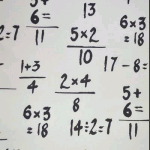 5+
6=
11
2=7
13
6×3
=18
5×2
10
17-8=
1+3
4
2×4
8
5+
6=
11
6×3
=18
14÷2=7